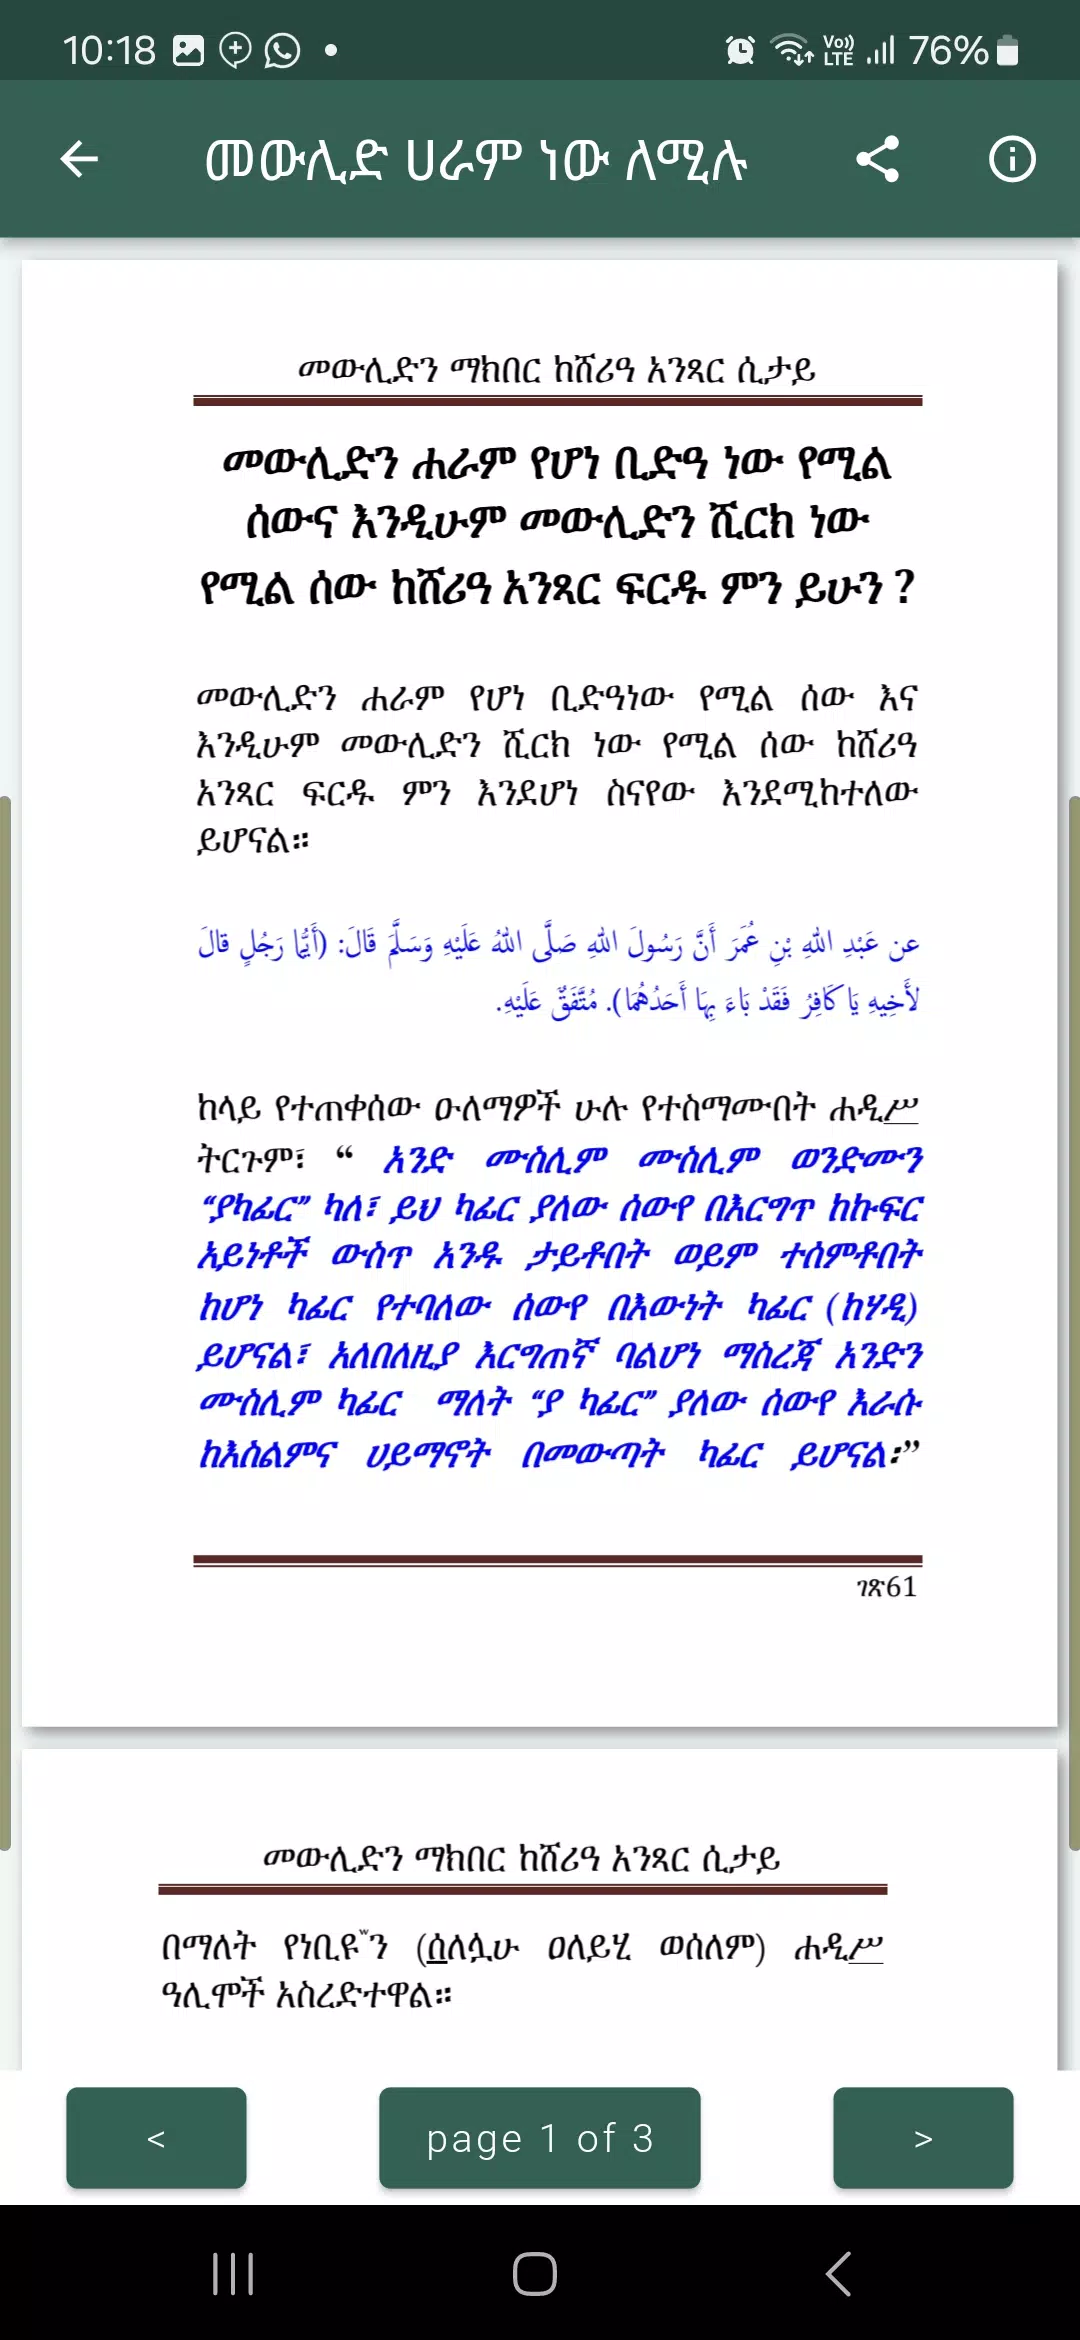 10:18
Vo)) LTE 76%
መውሊድ ሀራም ነው ለሚሉ
መውሊድን ማክበር ከሸሪዓ አንጻር ሲታይ
መውሊድን ሐራም የሆነ ቢድዓ ነው የሚል
ሰውና እንዲሁም መውሊድን ሺርክ ነው
የሚል ሰው ከሸሪዓ አንጻር ፍርዱ ምን ይሁን ?
መውሊድን ሐራም የሆነ ቢድዓነው የሚል ሰው እና
እንዲሁም መውሊድን ሺርክ ነው የሚል ሰው ከሸሪዓ
አንጻር ፍርዱ ምን እንደሆነ ስናየው እንደሚከተለው
ይሆናል።
عن عَبْدِ اللهِ بْنِ عُمَرَ أَنَّ رَسُولَ اللهِ صَلَّى اللهُ عَلَيْهِ وَسَلَّمَ قَالَ: (أَيُّمَا رَجُلٍ قالَ
لأَخِيهِ يَا كَافِرُ فَقَدْ بَاءَ بِهَا أَحَدُهُمَا). مُتَّفَقٌ عَلَيْهِ.
ከላይ የተጠቀሰው ዑለማዎች ሁሉ የተስማሙበት ሐዲሥ
ትርጉም፣ “ አንድ ሙስሊም ሙስሊም ወንድሙን
“ያካፊር” ካለ፣ ይህ ካፊር ያለው ሰውየ በእርግጥ ከኩፍር
አይነቶች ውስጥ አንዱ ታይቶበት ወይም ተሰምቶበት
ከሆነ ካፊር የተባለው ሰውየ በእውነት ካፊር (ከሃዲ)
ይሆናል፣ አለበለዚያ እርግጠኛ ባልሆነ ማስረጃ አንድን
ሙስሊም ካፊር ማለት “ያ ካፊር” ያለው ሰውየ እራሱ
ከእስልምና ሀይማኖት በመውጣት ካፊር ይሆናል፡”
ገጽ61
መውሊድን ማክበር ከሸሪዓ አንጻር ሲታይ
በማለት የነቢዩʷን (ሰለሏሁ ዐለይሂ ወሰለም) ሐዲሥ
ዓሊሞች አስረድተዋል።
< page 1 of 3 >